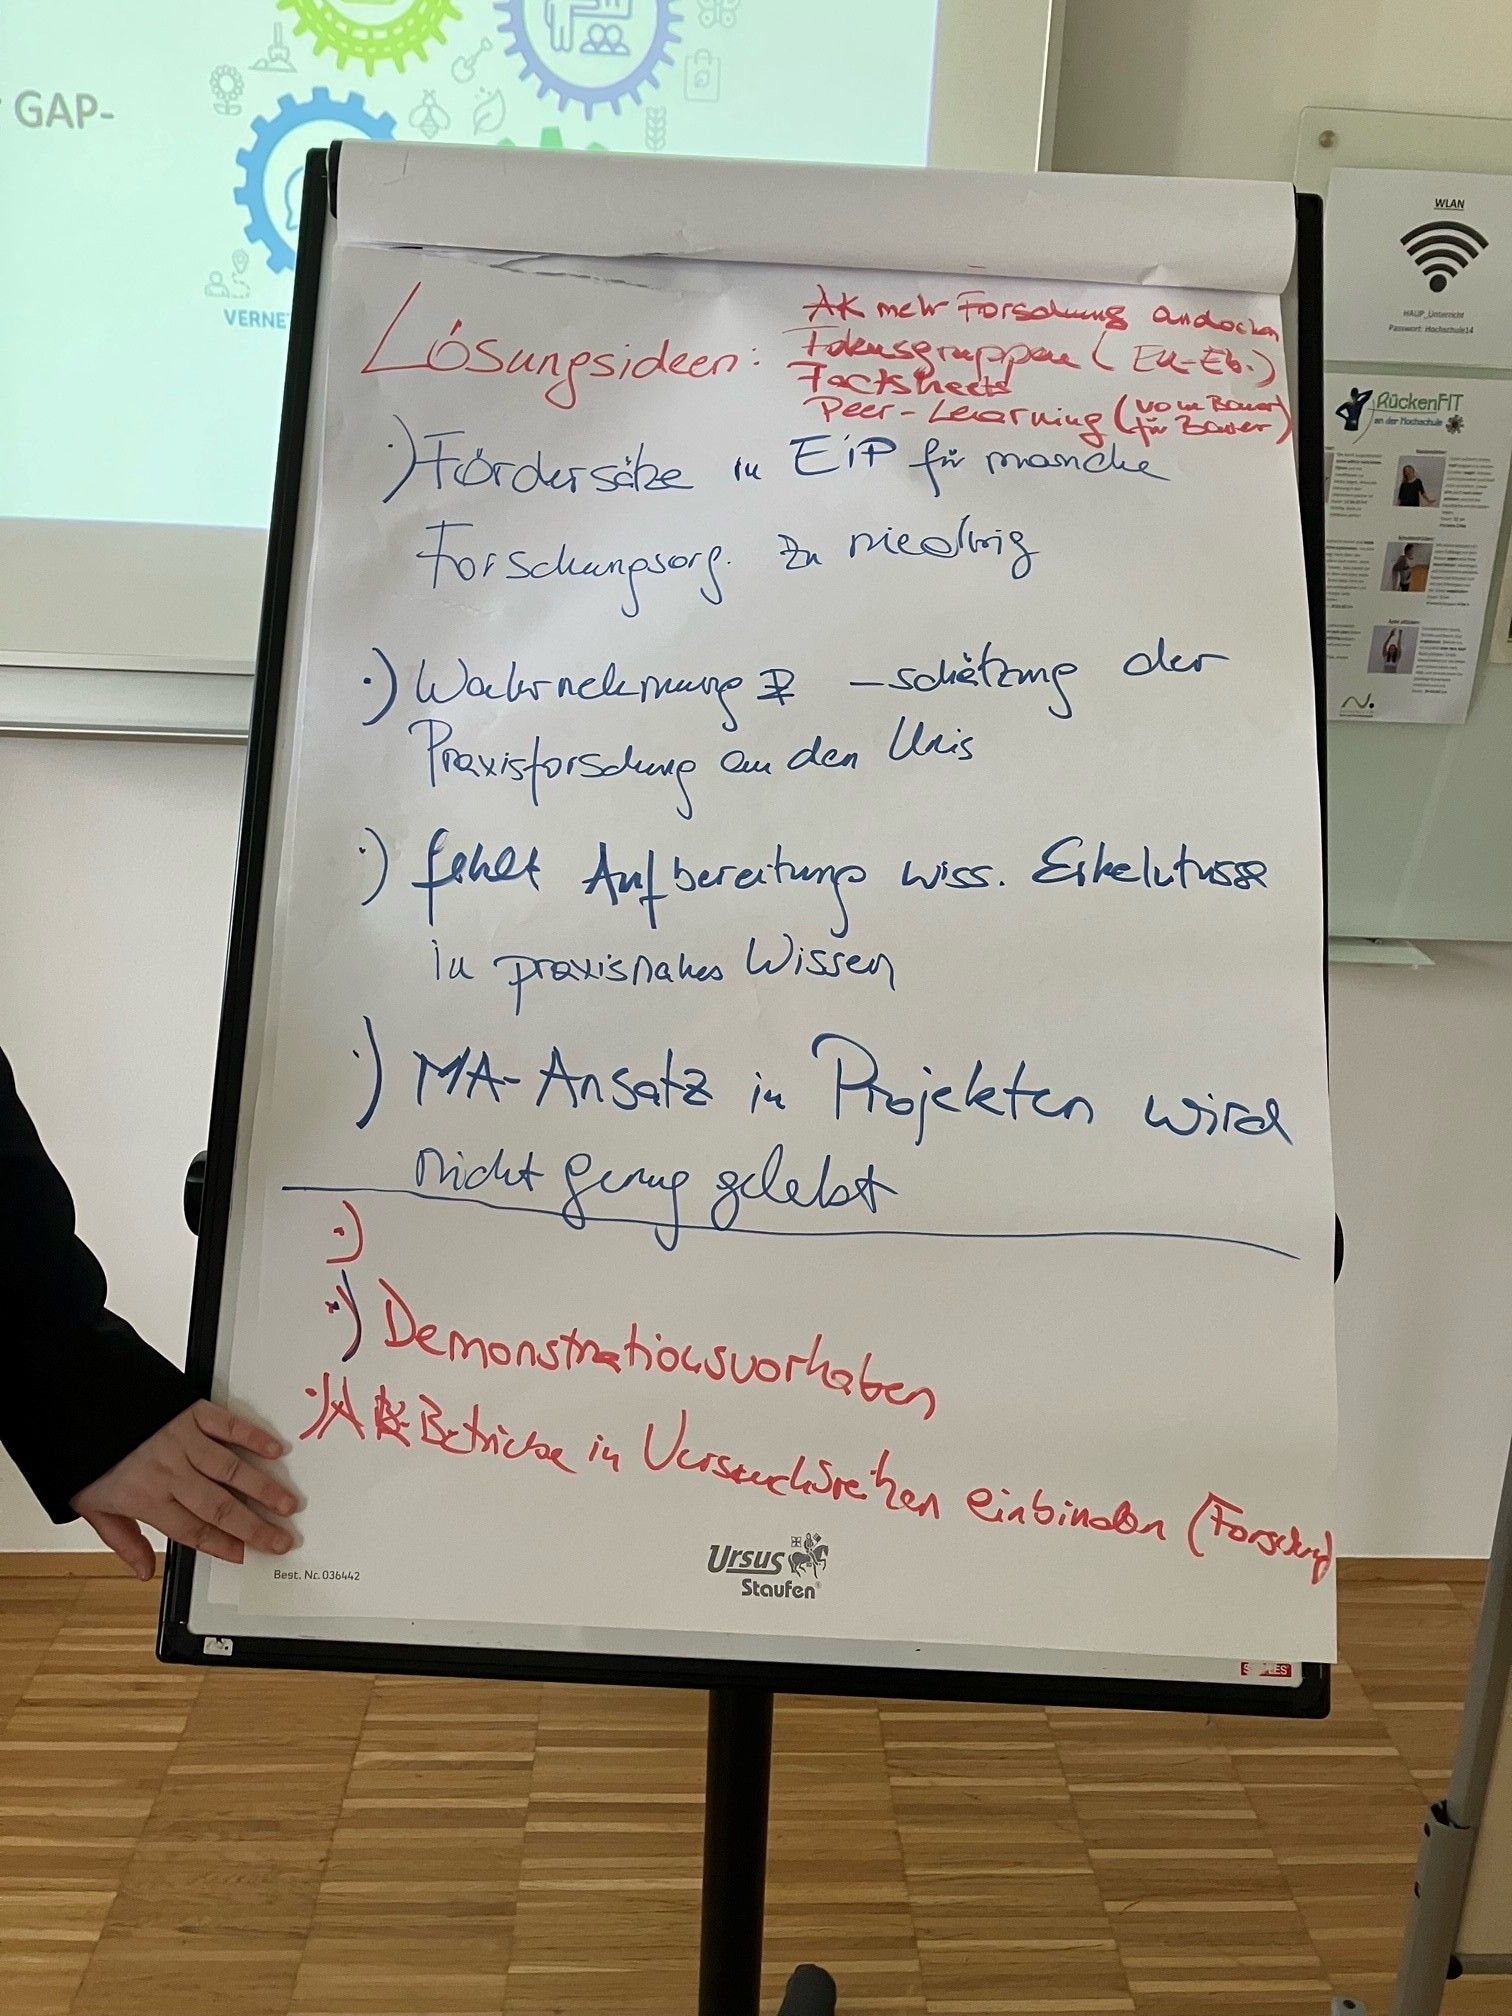 GAP-
VERNE
WLAN
HAUP_Unterricht
Passwort: Hochschule14
RückenFIT
an der Hochschule
Lösungsideen:
AK mehr Forschung andocken
Fokusgruppen (EU-Eb.)
Factsheets
Peer-Learning (vom Bauer
für Bauer)
·) Fördersätze in EiP für manche
Forschungsorg. zu niedrig
·) Wahrnehmung & -schätzung der
Praxisforschung an den Unis
·) fehlt Aufbereitung wiss. Erkenntnisse
in praxisnahes Wissen
·) MA-Ansatz in Projekten wird
nicht genug gelebt
·)
·) Demonstrationsvorhaben
·) AK-Betriebe in Versuchsreihen einbinden (Forschung)
Ursus
Staufen
Best. Nr. 036442